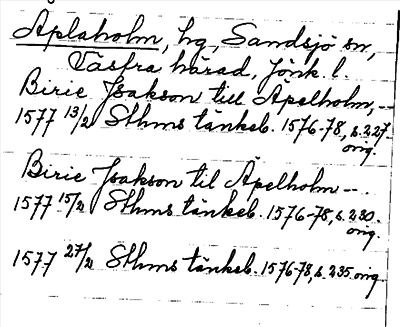 Aplaholm, hg, Sandsjö sn,
Västra härad, Jönk. l.
Birie Isakson till Äpelholm, --
1577 13/2 Sthms tänkeb. 1576-78, s. 227.
orig.
Birie Isakson til Äpelholm --.
1577 15/2 Sthms tänkeb. 1576-78, s. 230.
orig.
1577 27/2 Sthms tänkeb. 1576-78, s. 235 orig.